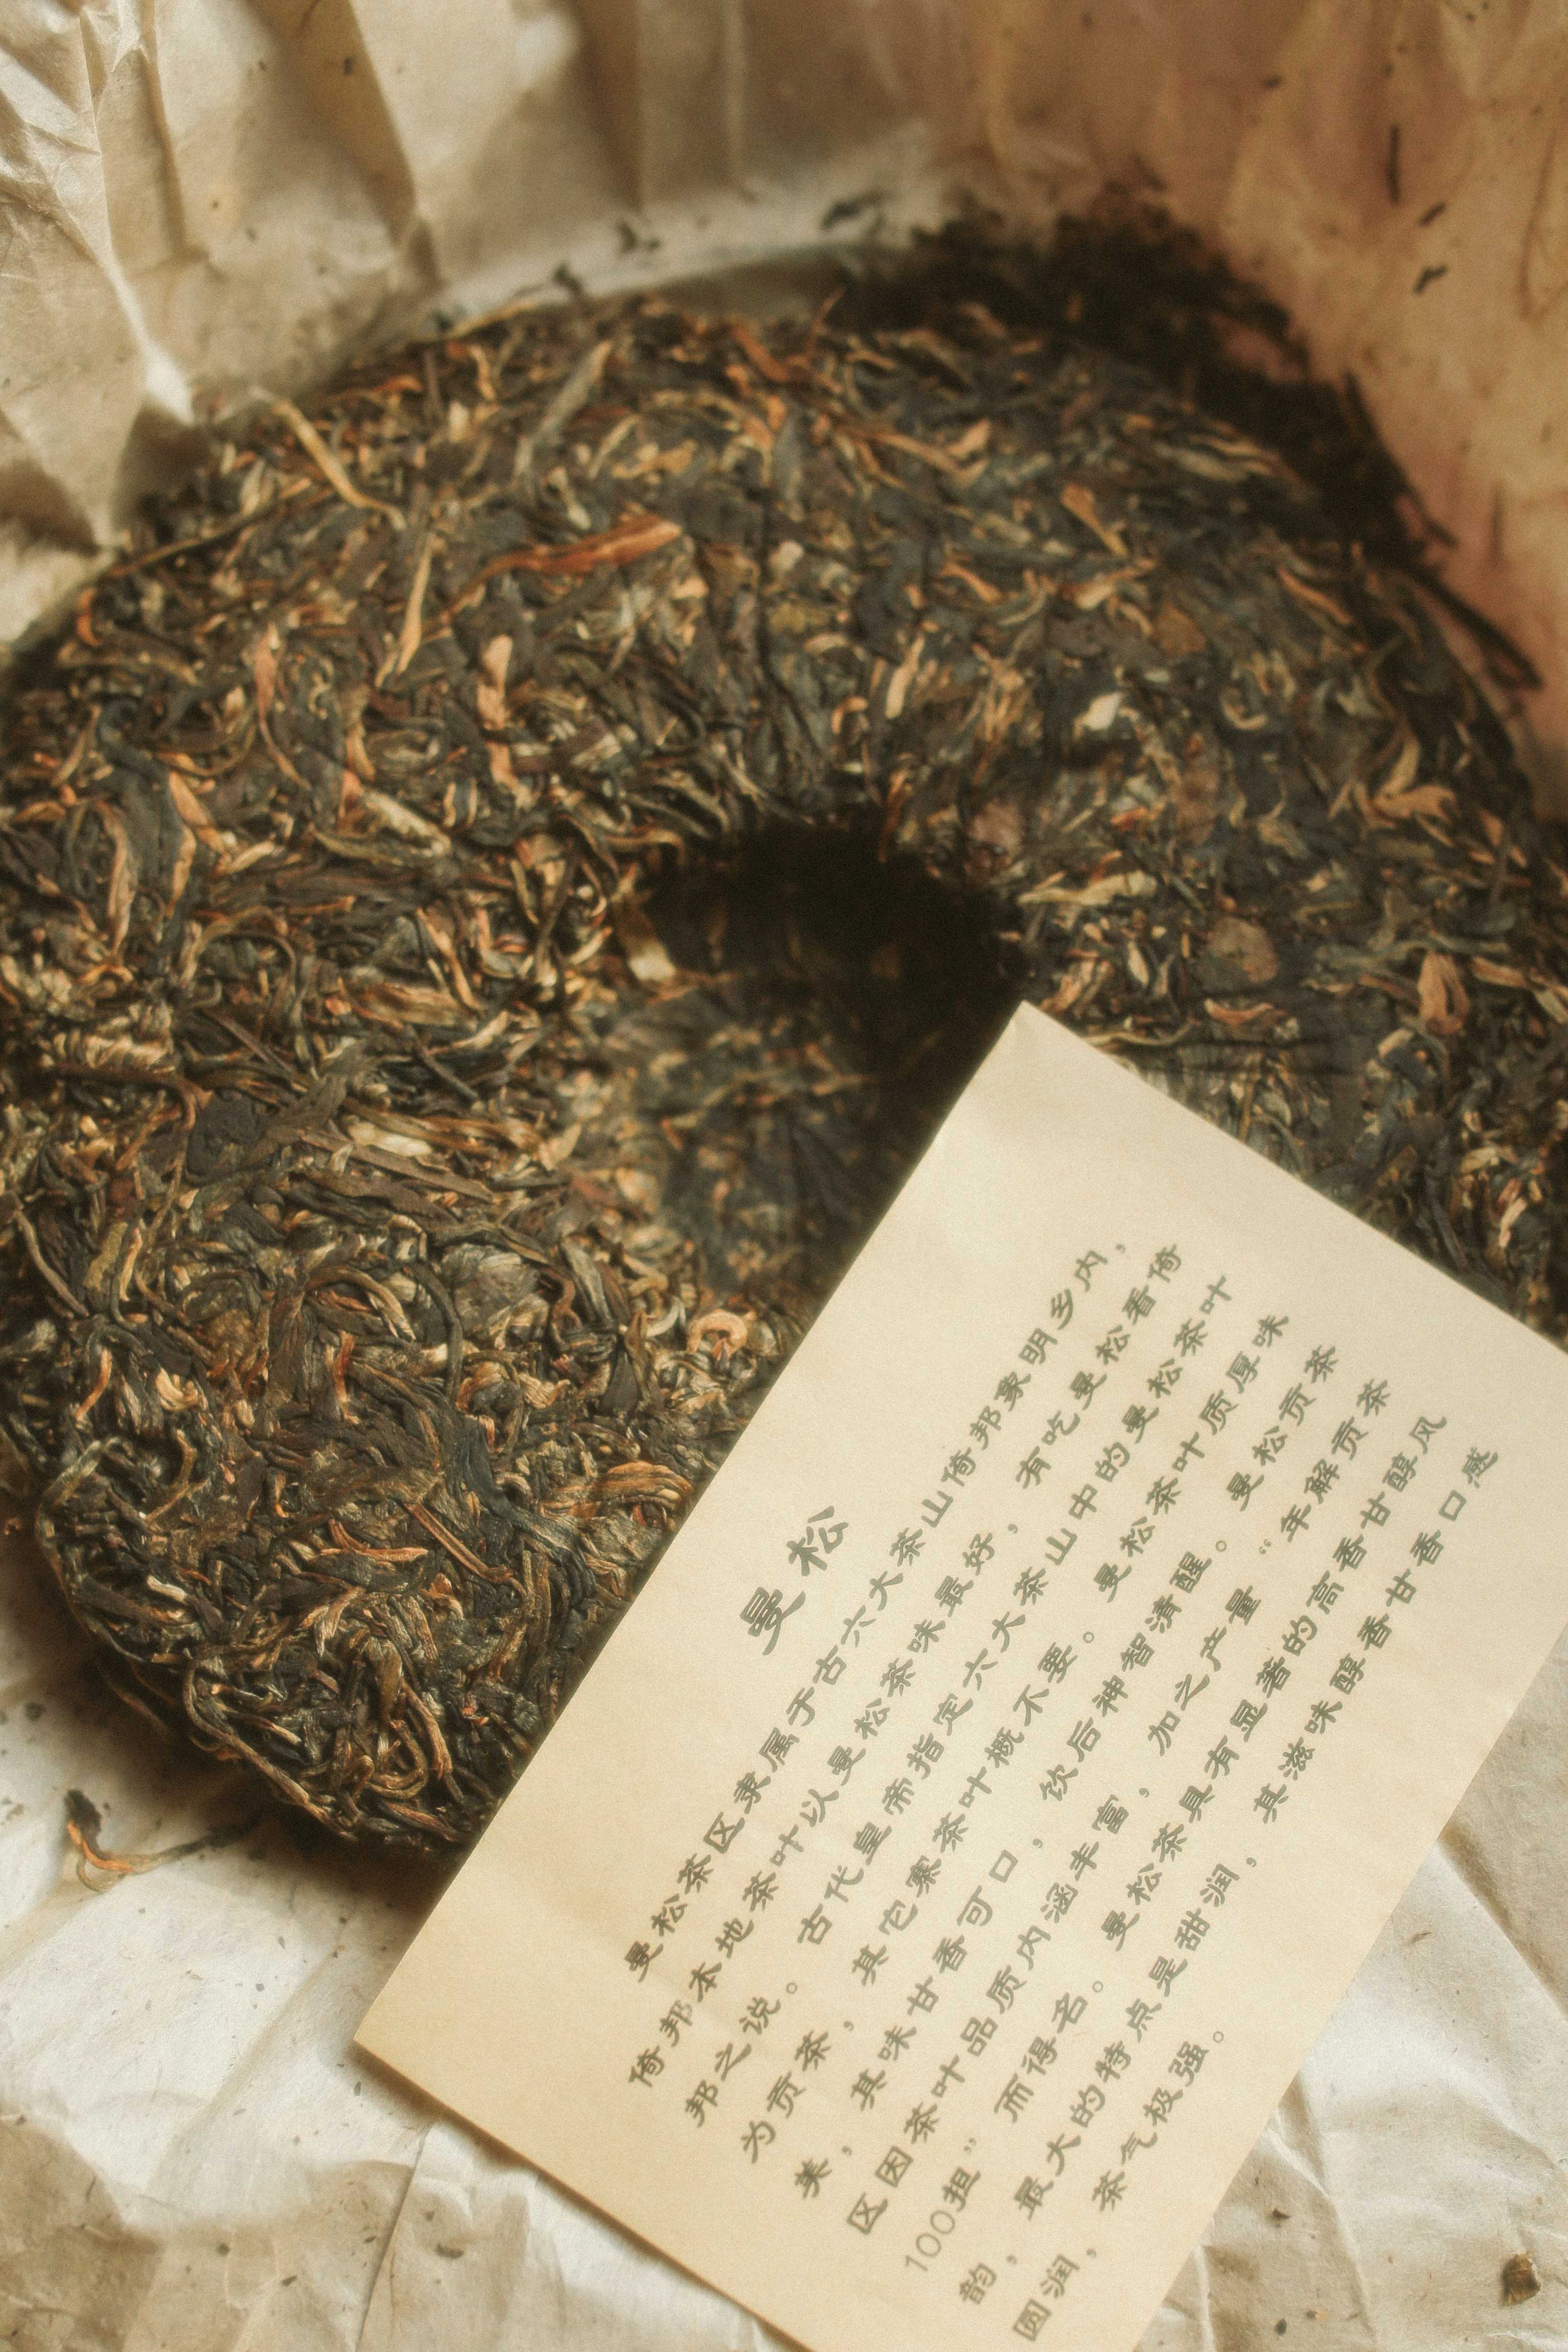 曼松
曼松茶区隶属于古六大茶山倚邦象明乡内，
倚邦本地茶叶以曼松茶味最好，有吃曼松看倚
邦之说。古代皇帝指定六大茶山中的曼松茶叶
为贡茶，其它寨茶叶概不要。曼松茶叶质厚味
美，其味甘香可口，饮后神智清醒。曼松贡茶
区因茶叶品质内涵丰富，加之产量“年解贡茶
100担”而得名。曼松茶具有显著的高香甘醇风
韵，最大的特点是甜润，其滋味醇香甘香口感
圆润，茶气极强。